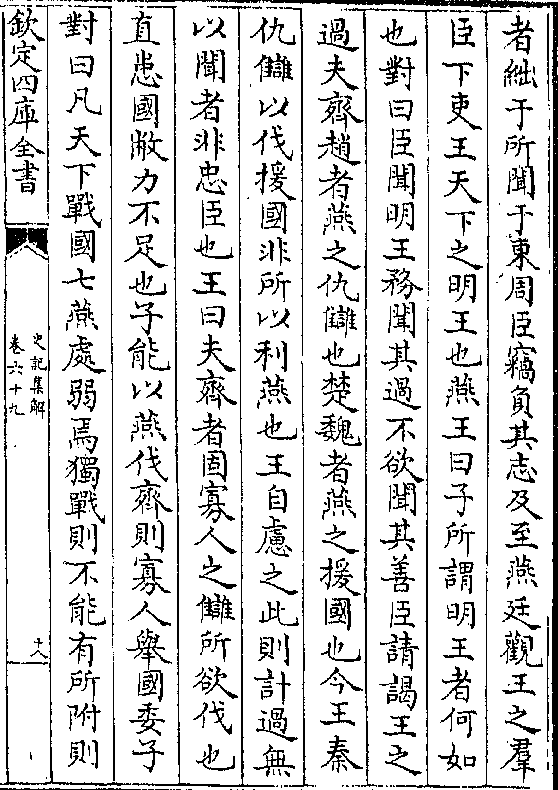 者絀于所聞于東周臣竊負其志及至燕廷觀王之羣
臣下吏王天下之明王也燕王曰子所謂明王者何如
也對曰臣聞明王務聞其過不欲聞其善臣請謁王之
過夫齊趙者燕之仇讎也楚魏者燕之援國也今王奉
仇讎以伐援國非所以利燕也王自慮之此則計過無
以聞者非忠臣也王曰夫齊者固寡人之讎所欲伐也
直患國敝力不足也子能以燕伐齊則寡人舉國委子
對曰凡天下戰國七燕處弱焉獨戰則不能有所附則
欽定四庫全書
史記集解
卷六十九
十八